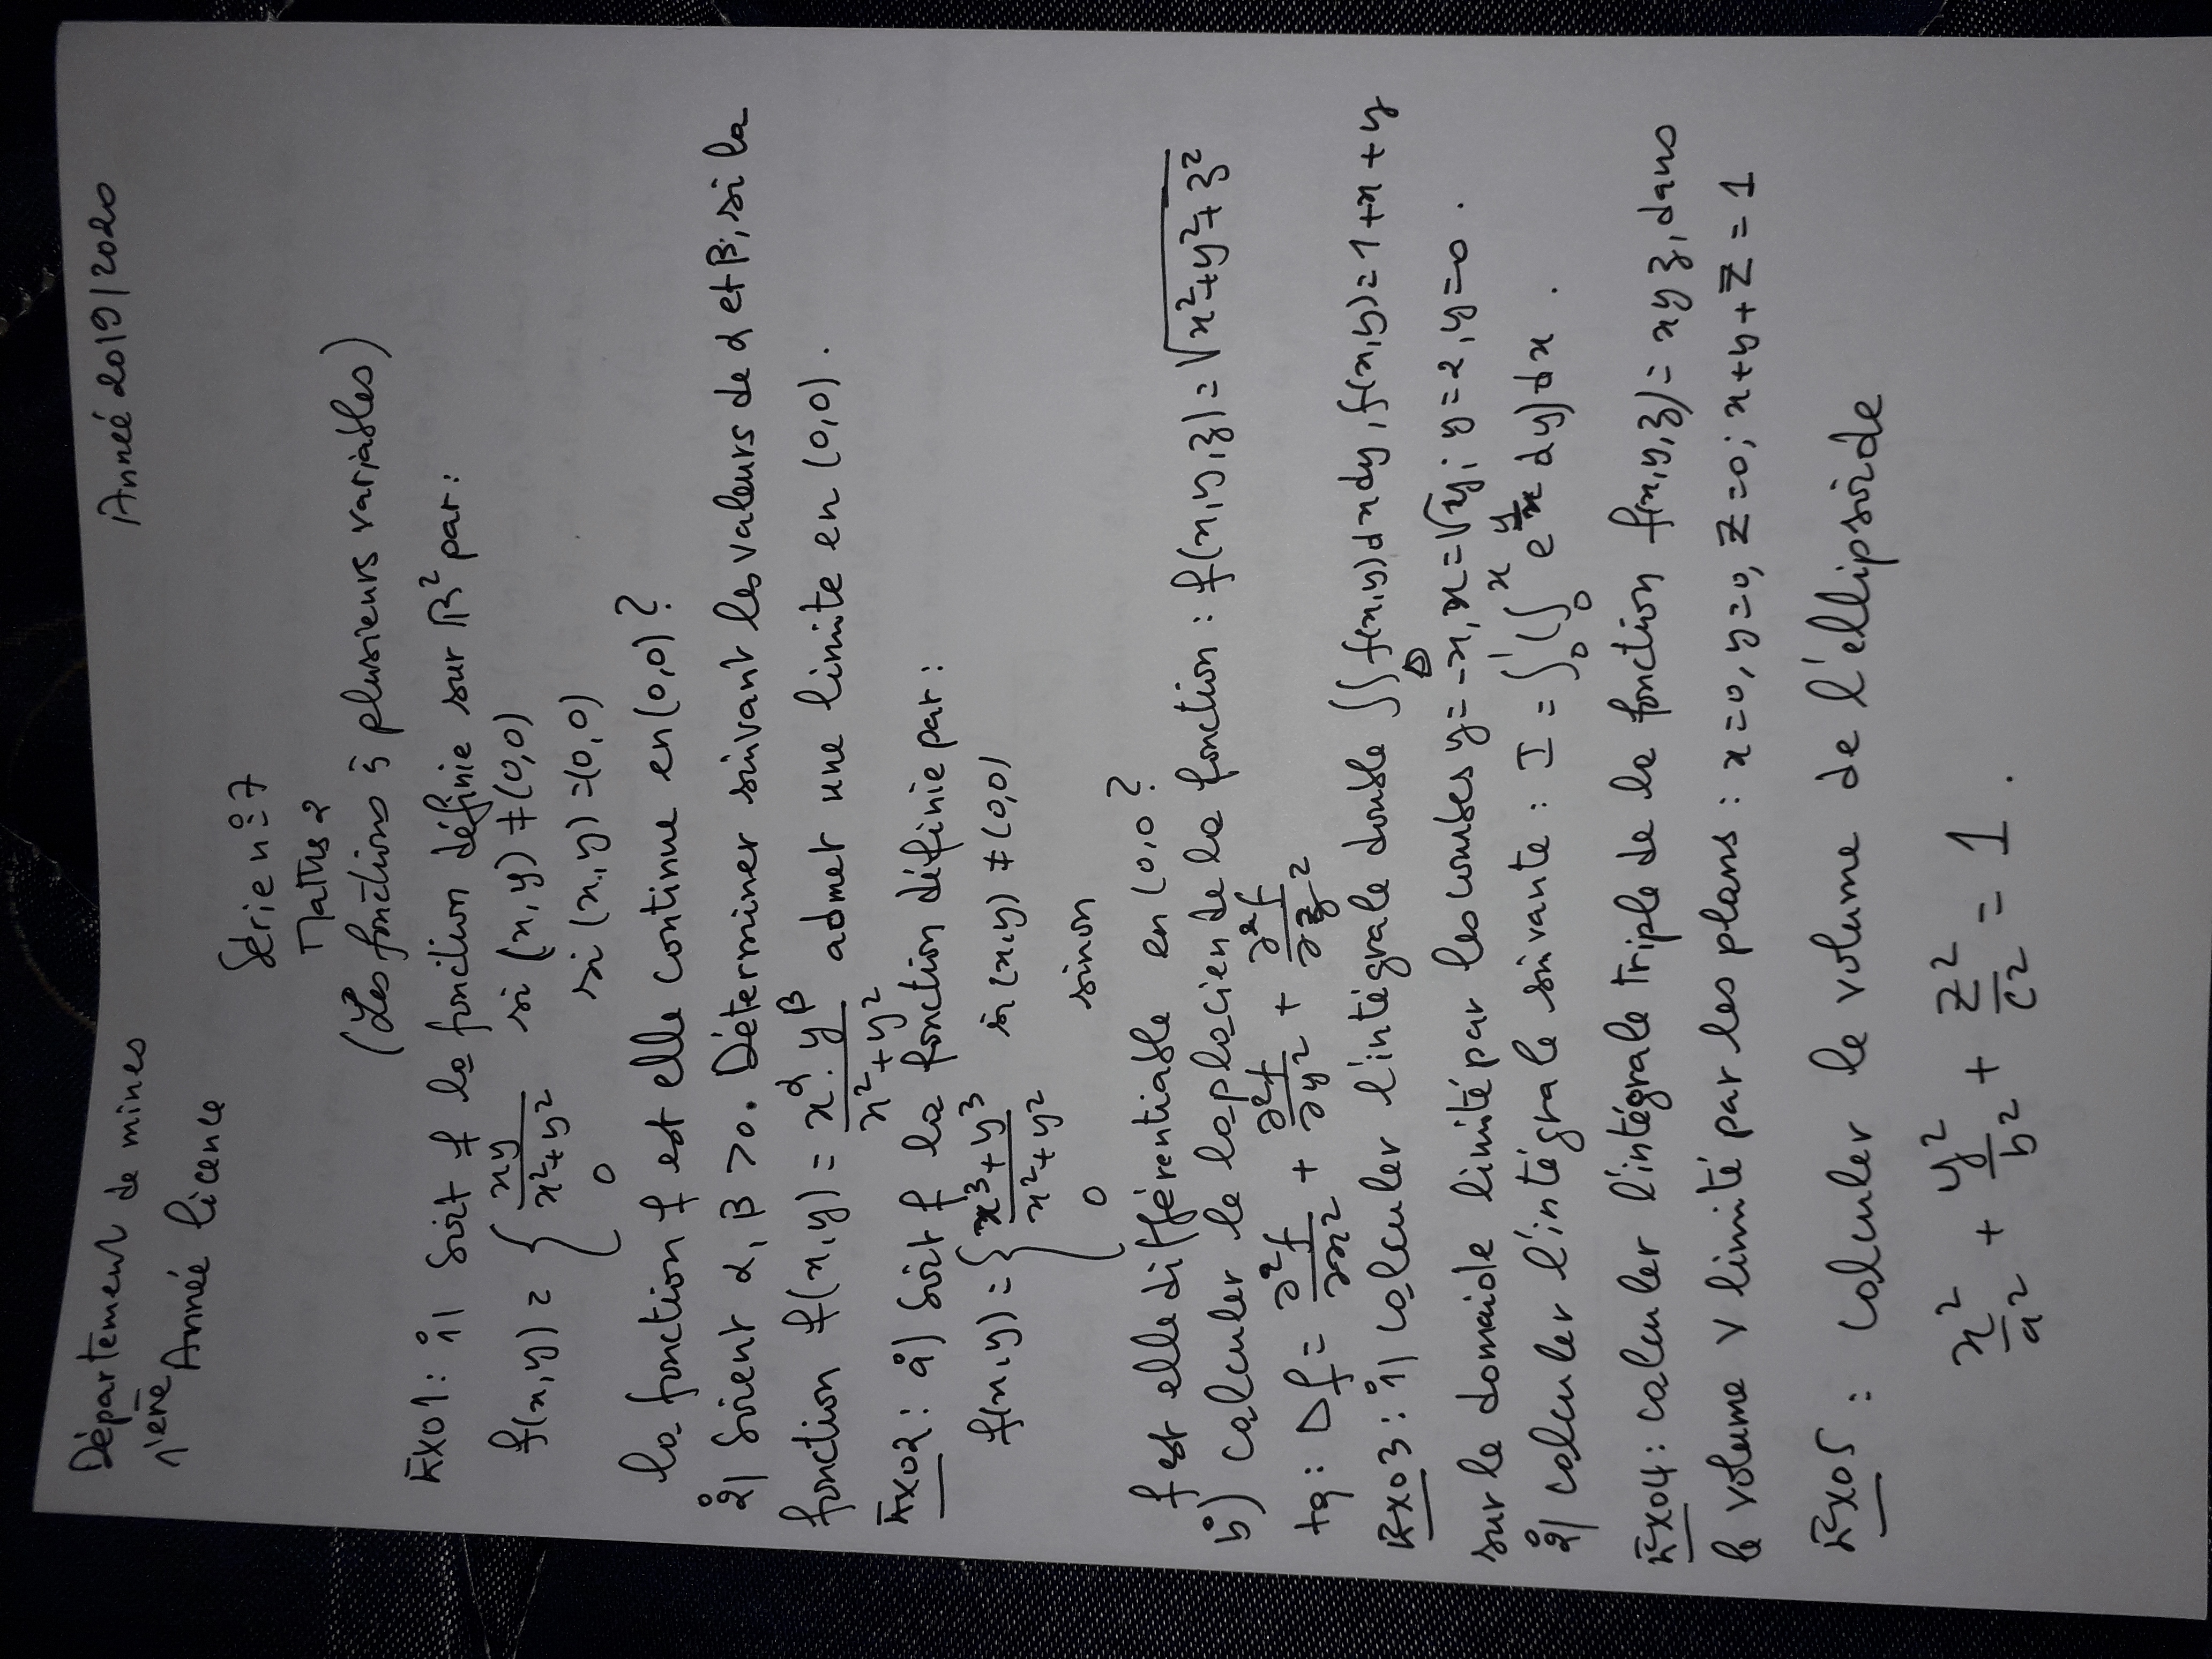 Département de mines Année 2019/2020
1ère Année licence
Série n°=7
Maths 2
(Les fonctions à plusieurs variables)
Exo1: 1°) Soit f la fonction définie sur R² par:
f(x,y) = { xy / x²+y² si (x,y) ≠ (0,0)
0 si (x,y) = (0,0)
la fonction f est elle continue en (0,0)?
2°) Soient α, β > 0. Déterminer suivant les valeurs de α et β, si la
fonction f(x,y) = x^α . y^β / x²+y² admet une limite en (0,0).
Exo2: a°) Soit f la fonction définie par:
f(x,y) = { x³+y³ / x²+y² si (x,y) ≠ (0,0)
0 sinon
f est elle différentiable en (0,0?
b°) calculer le laplacien de la fonction : f(x,y,z) = √x²+y²+z²
tq: Δf = ∂²f/∂x² + ∂²f/∂y² + ∂²f/∂z²
Exo3: 1°) calculer l'intégrale double ∫∫_D f(x,y) dx dy, f(x,y) = 1+x+y
sur le domaiole limité par les courbes y=-x, x=√y; y=2, y=0.
2°) calculer l'intégrale suivante : I = ∫₀¹ (∫₀ˣ e^(y/x) dy) dx .
Exo4: calculer l'intégrale triple de la fonction f(x,y,z) = xyz, dans
le volume V limité par les plans : x=0, y=0, Z=0; x+y+Z=1
Exo5 : calculer le volume de l'ellipsoide
x²/a² + y²/b² + z²/c² = 1 .